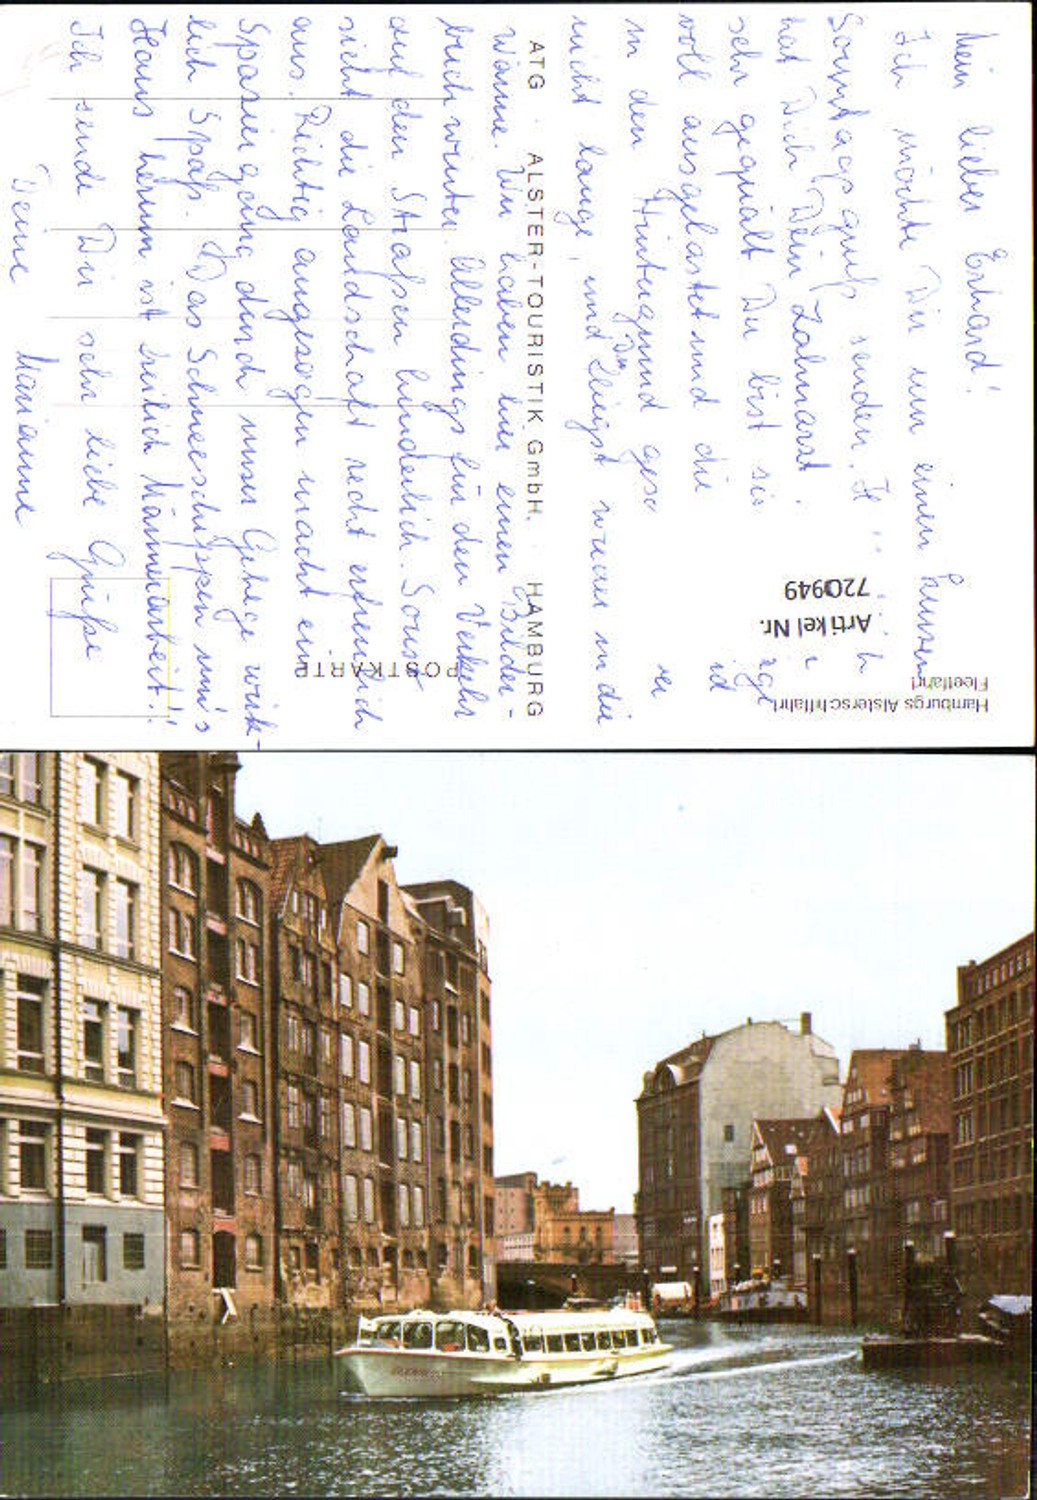 Mein lieber Erhard!
Ich möchte Dir nun einen kurzen
Sonntagsgruß senden. H
hat Dich Dein Zahnarzt
sehr gequält Du bist sic
voll ausgelastet und die
in den Hintergrund gesc
nicht lange, und Du steigst wieder in die
Wanne. Wir haben hier einen Bilder-
buchwinter. Allerdings für den Verkehr
auf den Straßen hinderlich. Sonst
sieht die Landschaft recht erfreulich
aus. Richtig angezogen macht ein
Spaziergang durch unser Gehege wirk-
lich Spaß. Das Schneeschippen um's
Haus herum ist freilich Männerarbeit!!
Ich sende Dir sehr liebe Grüße
Deine Marianne
ATG · ALSTER-TOURISTIK GmbH. · HAMBURG
POSTKARTE
Hamburgs Alsterschiffahrt
Fleetfahrt
Artikel Nr.
720949